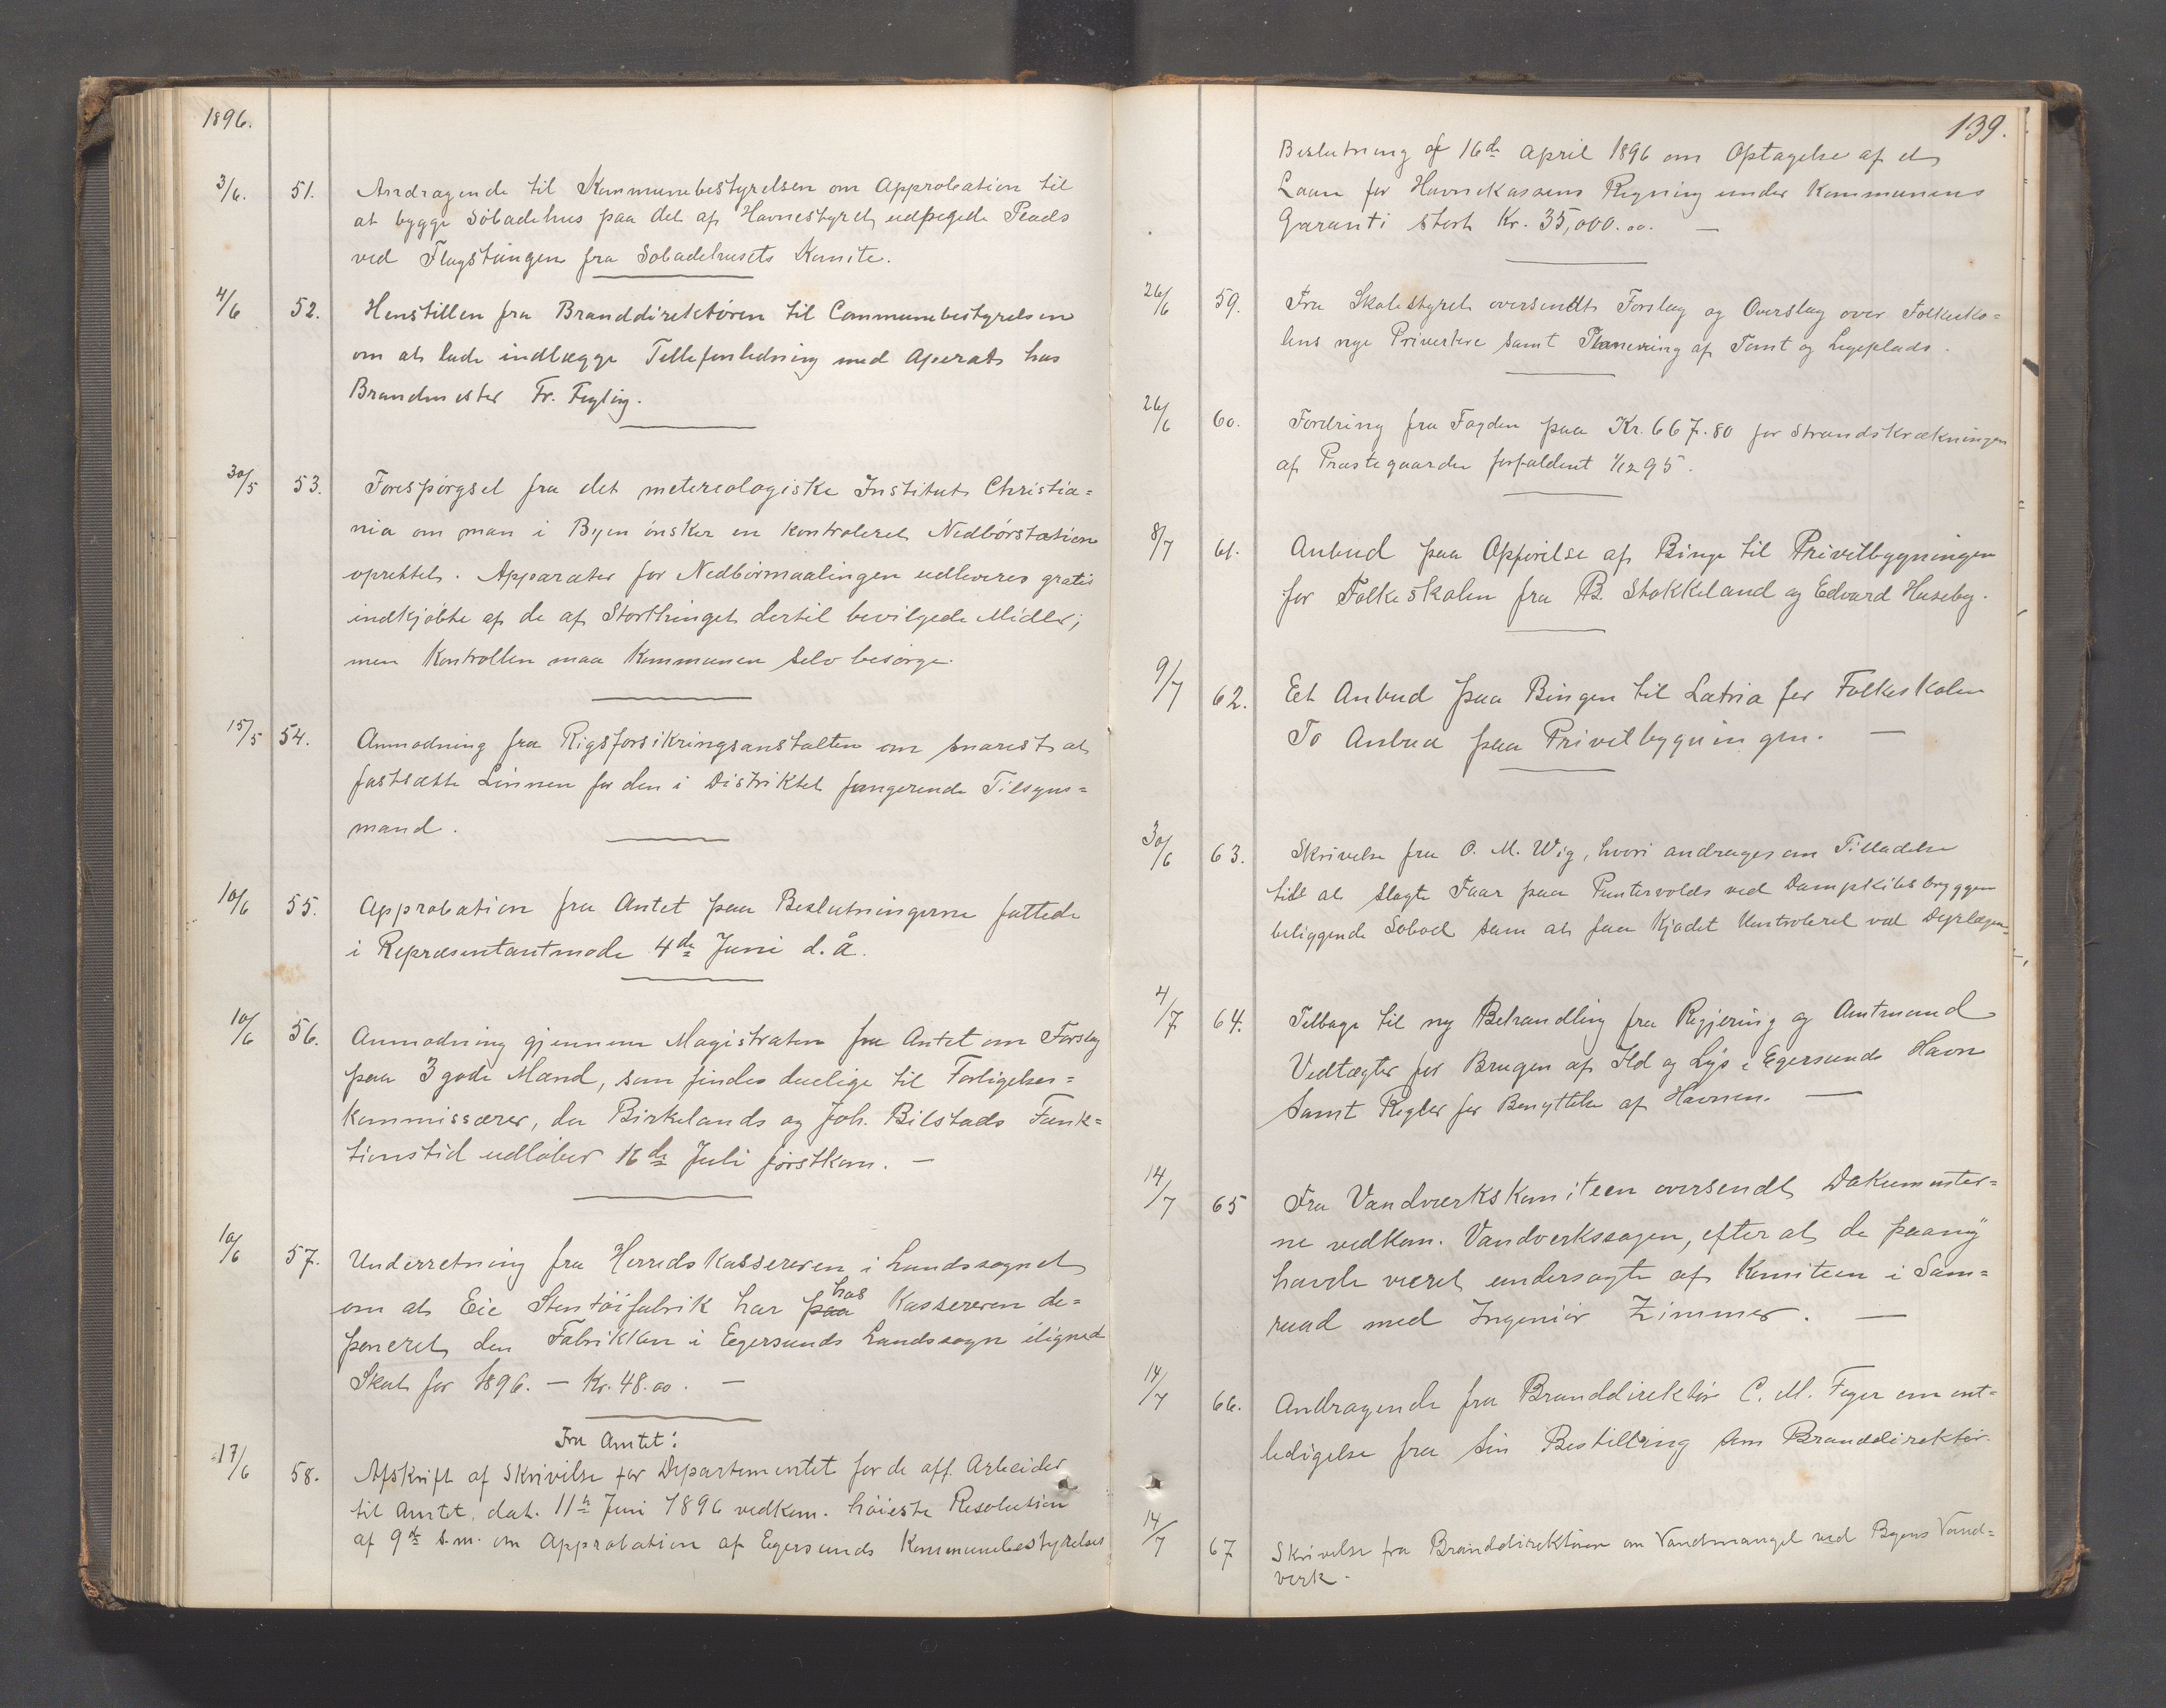 1896.
3/6. 51. Andragende til Kommunebestyrelsen om Approbation til
at bygge Söbadehus paa det af Havnestyret udpegede Plads
ved Flagstangen fra Söbadehusets Komite.
4/6 52. Henstillen fra Branddirektören til Communebestyrelsen
om at lade indlægge Tellefonledning med Aperat hos
Brandmester Fr. Fegling.
30/5 53. Forespörgsel fra det metereologiske Institut Christia=
nia om man i Byen önsker en Kontroleret Nedbörstation
oprettet. Apparater for Nedbörmaalingen udleveres gratis
indkjöbte af de af Storthinget dertil bevilgede Midler;
men Kontrollen maa Kommunen selv besörge.
15/5 54. Anmodning fra Rigsforsikringsanstalten om snarest at
fastsætte Lönnen for den i Distriktet fungerende Tilsyns=
mand.
10/6 55. Approbation fra Amtet paa Beslutningerne fattede
i Repræsentantmöde 4de Juni d. å.
10/6 56. Anmodning gjennem Magistraten fra Amtet om Forslag
paa 3 gode Mænd, som findes duelige til Forligelses=
Kommissærer, da Birkelands og Joh. Bilstads Funk=
tionstid udlöber 16de Juli förstkom. —
10/6 57. Underretning fra Herredskassereren i Landssognet
om at Eie Stentöifabrik har paa hos Kassereren de=
poneret den Fabrikken i Egersunds Landssogn ilignede
Skat for 1896. — Kr. 48.00. —
Fra Amtet:
17/6 58. Afskrift af Skrivelse for Departementet for de off. Arbeider
til Amtet, dat. 11te Juni 1896 vedkom. höieste Resolution
af 9de s.m. om Approbation af Egersunds Kommunebestyrelses
139.
Beslutning af 16de April 1896 om Optagelse af et
Laan for Havnekassens Regning under Kommunens
Garanti stort Kr. 35,000.00. —
26/6 59. Fra Skolestyret oversendt Forslag og Overslag over Folkesko=
lens nye Priveter samt Planering af Tomt og Legeplads.
26/6 60. Fordring fra Fogden paa Kr. 667.80 for Strandstrækningen
af Præstegaarden forfaldent 1/12 95.
8/7 61. Anbud paa Opförelse af Binge til Privetbygningen
for Folkeskolen fra B. Stokkeland og Edvard Huseby.
9/7 62. Et Anbud paa Bingen til Latria for Folkeskolen
To Anbud paa Privetbygningen. —
30/6 63. Skrivelse fra O. M. Wig, hvori andrages om Tilladelse
till at slagte Faar paa Puntervolds ved Dampskibsbryggen
beliggende Söbod samt at faa Kjödet Kontroleret ved Dyrlægen.
4/7 64. Tilbage til ny Behandling fra Regjering og Amtmand
Vedtægter for Brugen af Ild og Lys i Egersunds Havn
samt Regler for Benyttelse af Havnen. —
14/7 65 Fra Vandværkskomiteen oversendt Dokumenter=
ne vedkom. Vandverkssagen, efter at de paany
havde været undersögte af Komiteen i Sam=
raad med Ingeniör Zimmer. —
14/7 66. Andragende fra Branddirektör C. M. Feyer om ent=
ledigelse fra sin Bestilling som Branddirektör.
14/7 67 Skrivelse fra Branddirektören om Vandmangel ved Byens Vand=
verk.